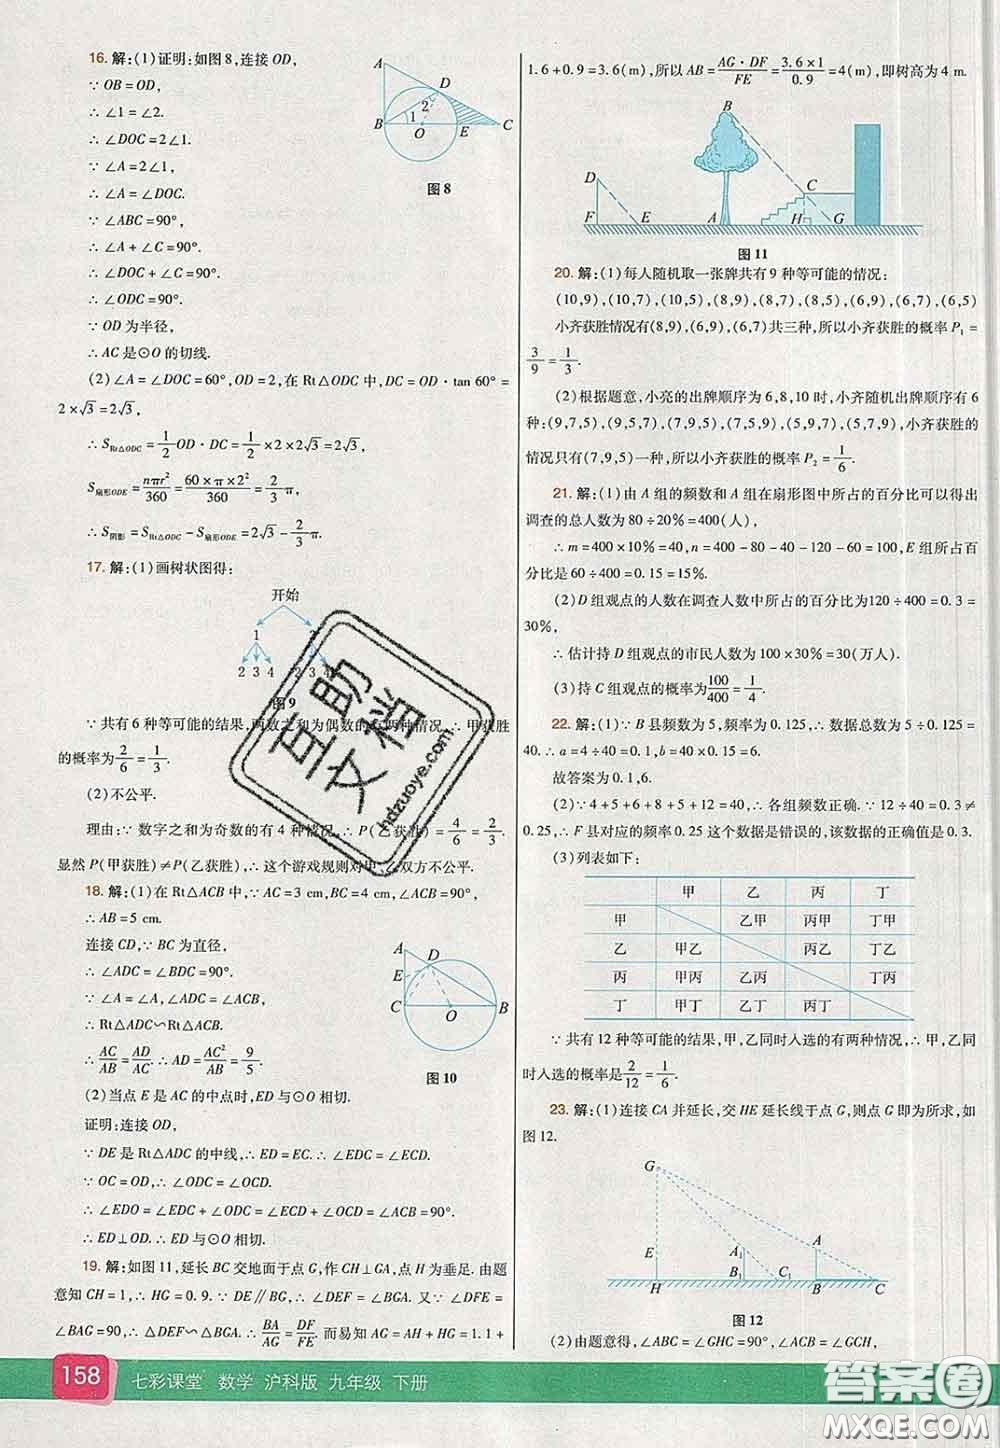 16. 解:(1)证明:如图8,连接OD,
∵ OB=OD,
∴ ∠1=∠2.
∴ ∠DOC=2∠1.
∵ ∠A=2∠1,
∴ ∠A=∠DOC.
∵ ∠ABC=90°,
∴ ∠A+∠C=90°.
∴ ∠DOC+∠C=90°.
∴ ∠ODC=90°.
∵ OD为半径,
∴ AC是⊙O的切线.
A
D
2
1
B
O
E
C
图8
(2)∠A=∠DOC=60°,OD=2,在Rt△ODC中,DC=OD·tan 60°=
2×√3=2√3,
∴ S_{Rt△ODC}=1/2 OD·DC=1/2×2×2√3=2√3,
S_{扇形ODE}=nπr²/360=60×π×2²/360=2/3 π,
∴ S_{阴影}=S_{Rt△ODC}-S_{扇形ODE}=2√3-2/3 π.
17. 解:(1)画树状图得:
开始
1 2
2 3 4 1 3 4
图9
∵ 共有6种等可能的结果,两数之和为偶数的有两种情况,∴ 甲获胜
的概率为2/6=1/3.
(2)不公平.
理由:∵ 数字之和为奇数的有4种情况,∴ P(乙获胜)=4/6=2/3.
显然P(甲获胜)≠P(乙获胜),∴ 这个游戏规则对甲、乙双方不公平.
18. 解:(1)在Rt△ACB中,∵ AC=3 cm,BC=4 cm,∠ACB=90°,
∴ AB=5 cm.
连接CD,∵ BC为直径,
∴ ∠ADC=∠BDC=90°.
∵ ∠A=∠A,∠ADC=∠ACB,
∴ Rt△ADC∽Rt△ACB.
∴ AC/AB=AD/AC.∴ AD=AC²/AB=9/5.
A
D
E
C
O
B
图10
(2)当点E是AC的中点时,ED与⊙O相切.
证明:连接OD,
∵ DE是Rt△ADC的中线,∴ ED=EC.∴ ∠EDC=∠ECD.
∵ OC=OD,∴ ∠ODC=∠OCD.
∴ ∠EDO=∠EDC+∠ODC=∠ECD+∠OCD=∠ACB=90°.
∴ ED⊥OD.∴ ED与⊙O相切.
19. 解:如图11,延长BC交地面于点G,作CH⊥AG,点H为垂足.由题
意知CH=1,∴ HG=0.9.∵ DE∥BG,∴ ∠DEF=∠BGA.又∵ ∠DFE=
∠BAG=90,∴ △DEF∽△BGA.∴ BA/AG=DF/FE.而易知AG=AH+HG=1.1+
1.6+0.9=3.6(m),所以AB=AG·DF/FE=3.6×1/0.9=4(m),即树高为4 m.
B
D
C
F E A H G
图11
20. 解:(1)每人随机取一张牌共有9种等可能的情况:
(10,9),(10,7),(10,5),(8,9),(8,7),(8,5),(6,9),(6,7),(6,5)
小齐获胜情况有(8,9),(6,9),(6,7)共三种,所以小齐获胜的概率P₁=
3/9=1/3.
(2)根据题意,小亮的出牌顺序为6,8,10时,小齐随机出牌的情况有6
种:(9,7,5),(9,5,7),(7,9,5),(7,5,9),(5,9,7),(5,7,9).小齐获胜的
情况只有(7,9,5)一种,所以小齐获胜的概率P₂=1/6.
21. 解:(1)由A组的频数和A组在扇形图中所占的百分比可以得出
调查的总人数为80÷20%=400(人),
∴ m=400×10%=40,n=400-80-40-120-60=100,E组所占百
分比是60÷400=0.15=15%.
(2)D组观点的人数在调查人数中所占的百分比为120÷400=0.3=
30%,
∴ 估计持D组观点的市民人数为100×30%=30(万人).
(3)持C组观点的概率为100/400=1/4.
22. 解:(1)∵ B县频数为5,频率为0.125,∴ 数据总数为5÷0.125=
40.∴ a=4÷40=0.1,b=40×0.15=6.
故答案为0.1,6.
(2)∵ 4+5+6+8+5+12=40,∴ 各组频数正确.∵ 12÷40=0.3≠
0.25,∴ F县对应的频率0.25这个数据是错误的,该数据的正确值是0.3.
(3)列表如下:
甲 乙 丙 丁
甲 乙甲 丙甲 丁甲
乙 甲乙 丙乙 丁乙
丙 甲丙 乙丙 丁丙
丁 甲丁 乙丁 丙丁
∵ 共有12种等可能的结果,甲,乙同时入选的有两种情况,∴ 甲,乙同
时入选的概率是2/12=1/6.
23. 解:(1)连接CA并延长,交HE延长线于点G,则点G即为所求,如
图12.
G
E A₁ A
H B₁ C₁ B C
图12
(2)由题意得,∠ABC=∠GHC=90°,∠ACB=∠GCH,
158 七彩课堂 数学 沪科版 九年级 下册
互助文档
hdzuoye.com
答案圈
MXQE.COM